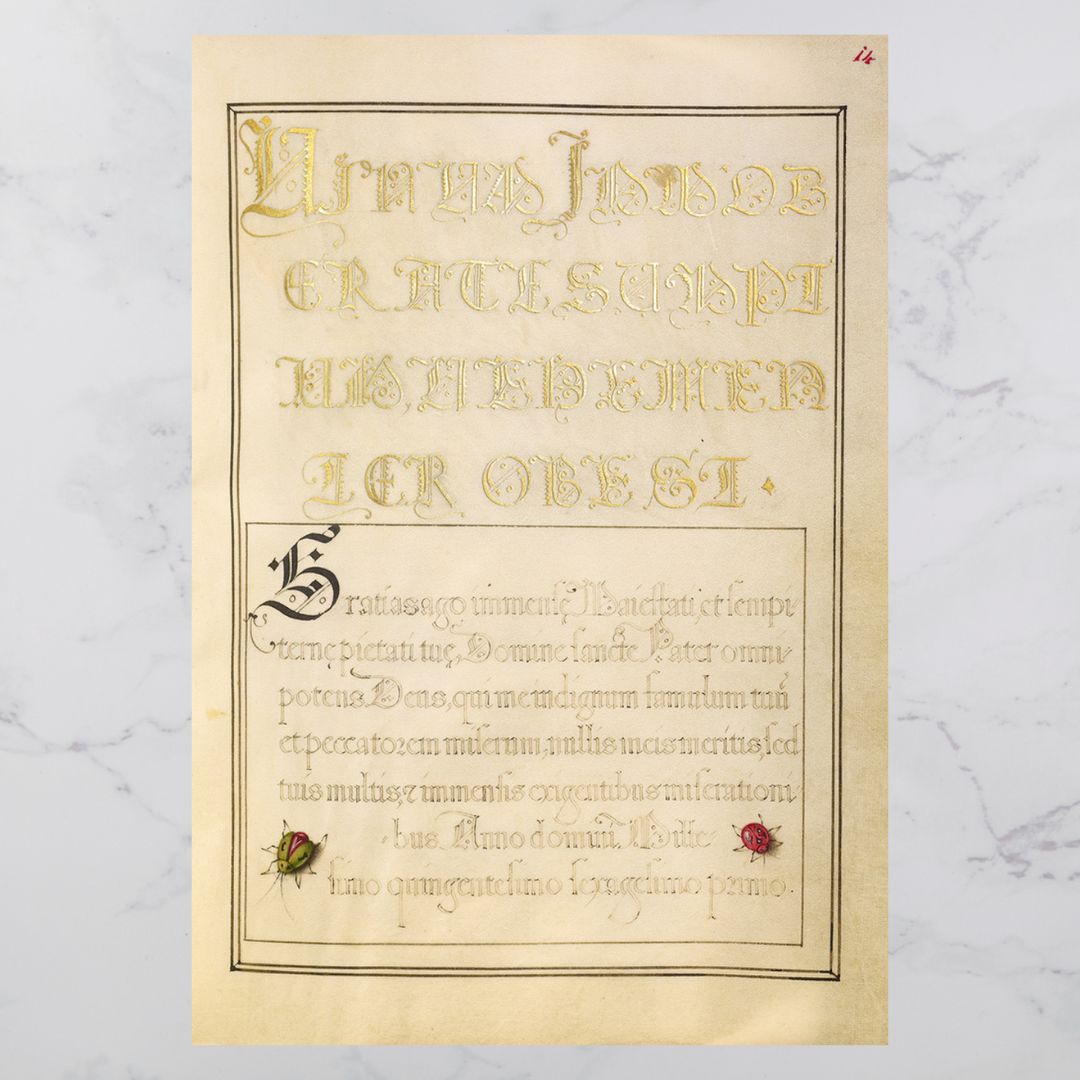 14
ERATE SUMPT
UEHEMEN
TER OBEST.
Gratias ago immensę Maiestati, et sempi-
ternę pietati tuę, Domine sancte Pater omni-
potens Deus, qui me indignum famulum tuū
et peccatorem miserum, nullis meis meritis, sed
tuis multis, & immensis exigentibus miserationi-
bus. Anno domini Mille-
simo quingentesimo sexagesimo primo.